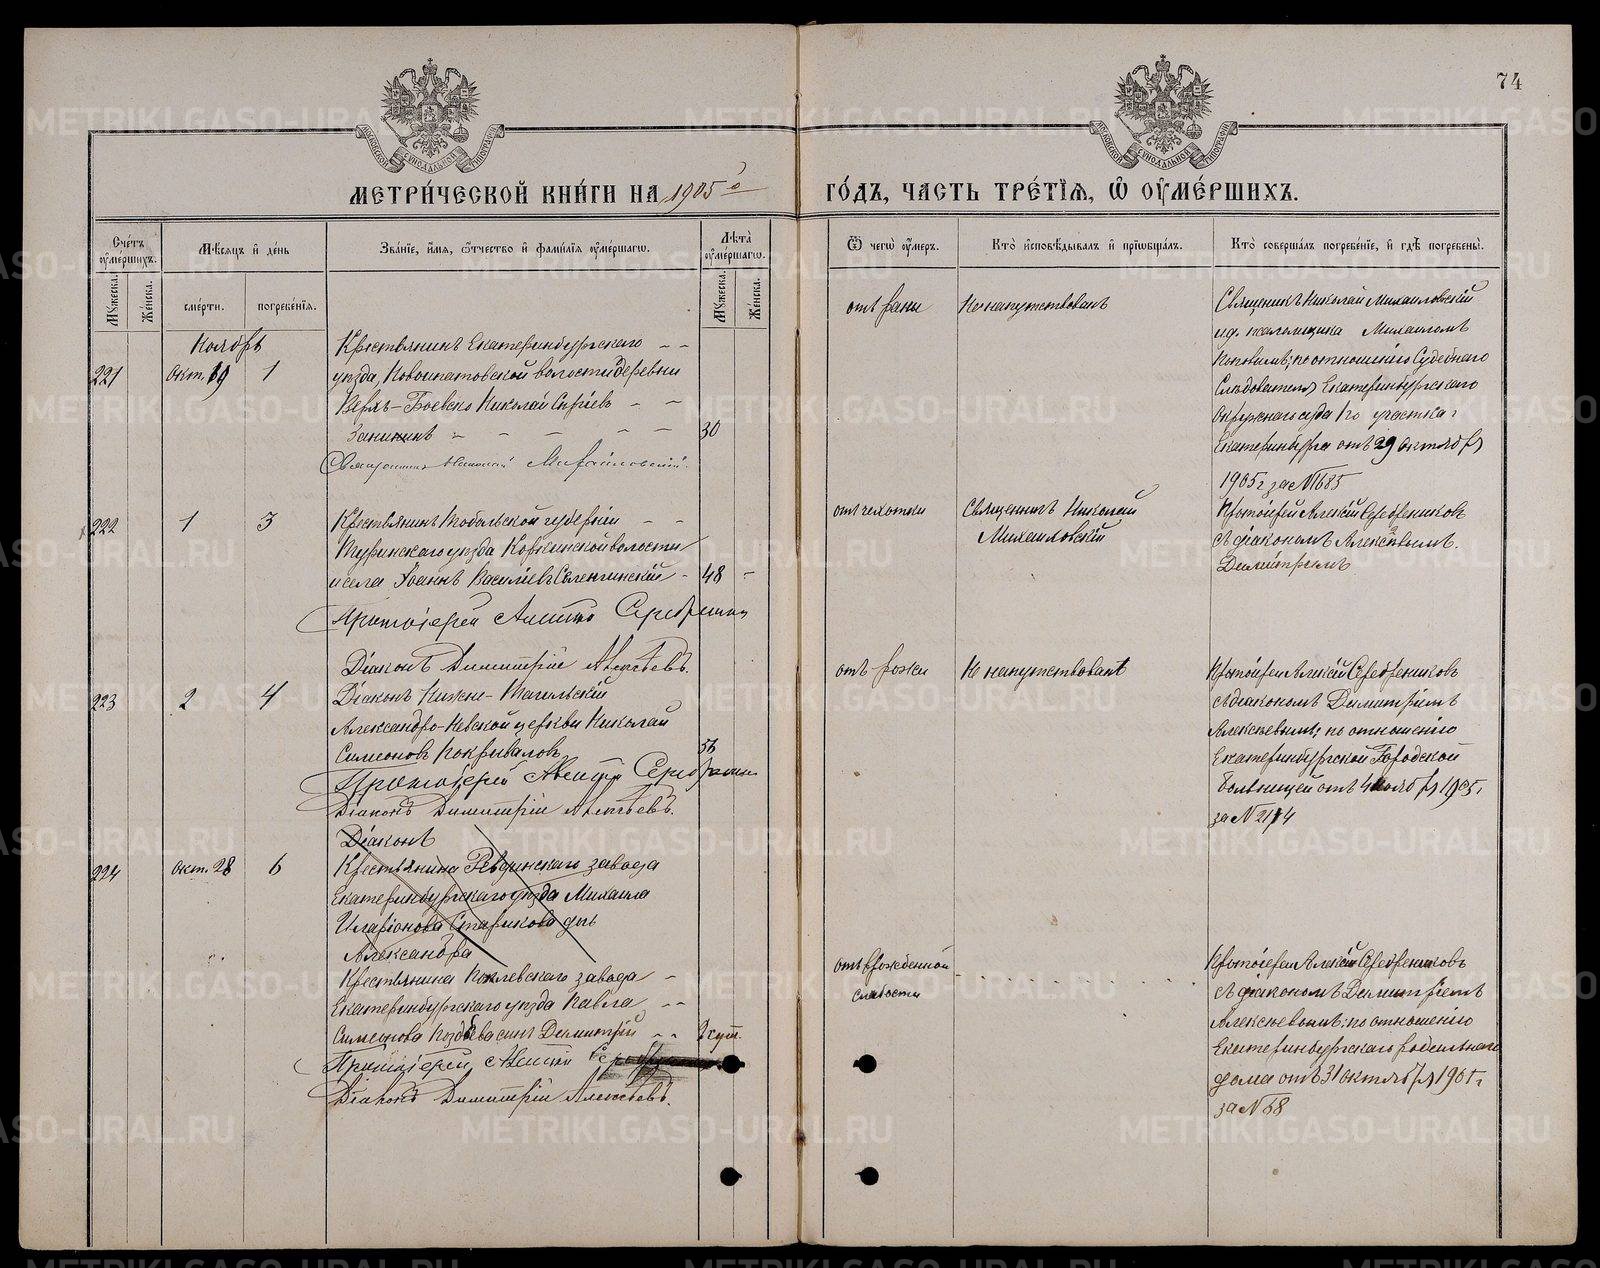 74
МЕТРИ́ЧЕСКОЙ КНИ́ГИ НА 1905й
ГО́ДЪ, ЧАСТЬ ТРЕ́ТЇѦ, Ѽ ОУ҆МЕ́РШИХЪ.
Сче́тъ оу҆ме́ршихъ.
Мѣ́сѧцъ и҆ де́нь
Зва́нїе, и҆́мѧ, ѻ҆́тчество и҆ фами́лїѧ оу҆ме́ршагѡ.
Лѣ́та̀ оу҆ме́ршагѡ.
Мꙋ́жеска.
Же́нска.
сме́рти.
погребе́нїѧ.
Мꙋ́жеска.
Же́нска.
Ѿ чегѡ̀ оу҆́меръ.
Кто̀ и҆сповѣ́дывалъ и҆ прїѡбща́лъ.
Кто̀ соверша́лъ погребе́нїе, и҆ гдѣ̀ погребены̀.
Ноябрь
221
Окт. 19
1
Крестьянинъ Екатеринбургскаго
уѣзда, Новоипатовской волости деревни
Верхъ-Боевско Николай Сергіевъ
30
Священникъ Николай Михайловскій
отъ раны
Не напутствованъ
Священникъ Николай Михайловскій
ид. псаломщика Михаиломъ
по отношенію Судебнаго
Слѣдователя Екатеринбургскаго
Окружнаго суда 1го участка г.
Екатеринбурга отъ 29 октября
1905 г за № 1685
222
1
3
Крестьянинъ Тобольской губерніи
Туринскаго уѣзда Коркинской волости
и села Іоаннъ Василіевъ Селенгинскій
48
Протоіерей Алексій Серебрениковъ
Діаконъ Димитрій Алексѣевъ.
отъ чехотки
Священникъ Николай
Михаиловскій
Протоіерей Алексій Серебрениковъ
съ діакономъ Алексѣевымъ.
Димитріемъ
223
2
4
Діаконъ Нижне-Тагильскій
Александро-Невской церкви Николай
Симеоновъ Покрываловъ
Протоіерей Алексій Серебрениковъ
Діаконъ Димитрій Алексѣевъ.
отъ рожи
Не напутствованъ
Протоіерей Алексій Серебрениковъ
съ діакономъ Димитріемъ
Алексѣевымъ; по отношенію
Екатеринбургской Городской
больницей отъ 4 ноября 1905 г.
за № 2174
Діаконъ
224
Окт. 28
6
Крестьянина Ревдинскаго завода
Екатеринбургскаго уѣзда Михаила
Иларіонова Старикова дочь
Александра
Крестьянина завода
Екатеринбургскаго уѣзда Павла
Симеонова сынъ Димитрій
2 сут.
Протоіерей Алексій Серебрениковъ
Діаконъ Димитрій Алексѣевъ.
отъ врожденной
слабости
Протоіерей Алексій Серебрениковъ
съ діакономъ Димитріемъ
Алексѣевымъ: по отношенію
Екатеринбургскаго родильнаго
дома отъ 31 октября 1905 г
за № 68
METRIKI.GASO-URAL.RU